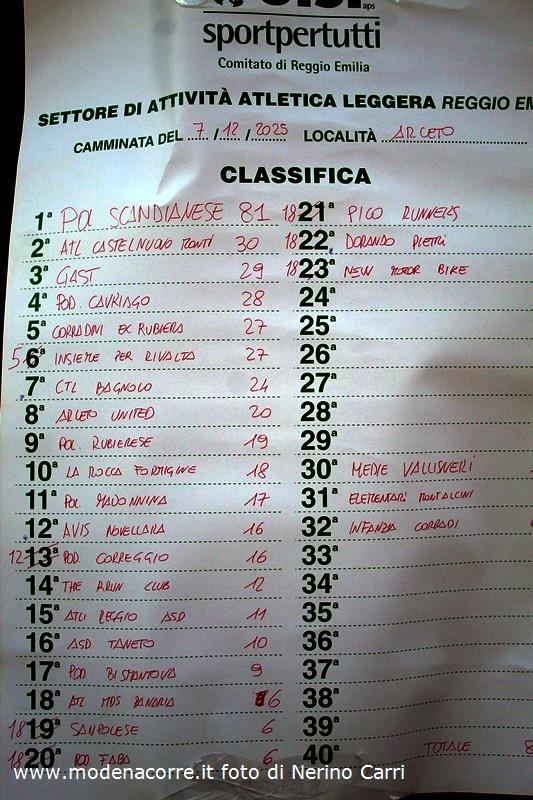 aps
sportpertutti
Comitato di Reggio Emilia
SETTORE DI ATTIVITÀ ATLETICA LEGGERA REGGIO EM
CAMMINATA DEL 7 / 12 / 2025 LOCALITÀ ARCETO
CLASSIFICA
1ª POL SCANDIANESE 81
2ª ATL CASTELNUOVO MONTI 30
3ª GAST 29
4ª POD. CAVRIAGO 28
5ª CORRADINI EX RUBIERA 27
5 6ª INSIEME PER RIVALTA 27
7ª CTL BAGNOLO 24
8ª ARCETO UNITED 20
9ª POL. RUBIERESE 19
10ª LA ROCCA FORMIGINE 18
11ª POL MADONNINA 17
12ª AVIS NOVELLARA 16
12 13ª POD. CORREGGIO 16
14ª THE RRUN CLUB 12
15ª ATL REGGIO ASD 11
16ª ASD TANETO 10
17ª POD BISMANTOVA 9
18ª ATL MDS PANARIA 6
18 19ª SAMPOLESE 6
18 20ª POD FABA 6
18 21ª PICO RUNNERS
18 22ª DORANDO PIETRI
18 23ª NEW MOTOR BIKE
24ª
25ª
26ª
27ª
28ª
29ª
30ª MEDIE VALLISNERI
31ª ELEMENTARI MONTALCINI
32ª INFANZIA CORRADI
33ª
34ª
35ª
36ª
37ª
38ª
39ª
40ª TOTALE 8
www.modenacorre.it foto di Nerino Carri